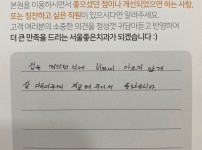 본원을 이용하시면서 좋으셨던 점이나 개선되었으면 하는 사항,
또는 칭찬하고 싶은 직원이 있으시다면 알려주세요.
고객 여러분의 소중한 의견을 정성껏 귀담아듣고 반영하여
더 큰 만족을 드리는 서울좋은치과가 되겠습니다 :)
겁을 먹었던 것에 비하여 아프지 않게
잘 해주셔서